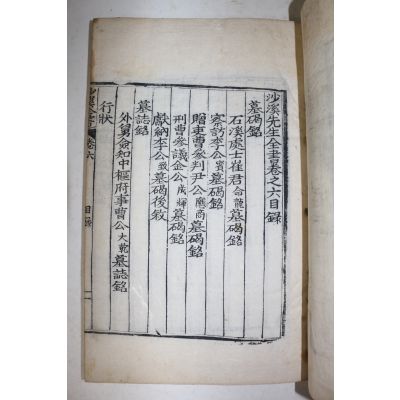 沙溪先生全書卷之六目録
墓碣銘
石溪處士崔君命龍墓碣銘
察訪李公賓墓碣銘
贈吏曹參判尹公應商墓碣銘
刑曹參議金公成輝墓碣銘
獻納李公致墓碣後敘
墓誌銘
外舅僉知中樞府事曹公大乾墓誌銘
行狀
沙溪全書 卷六 目録 一